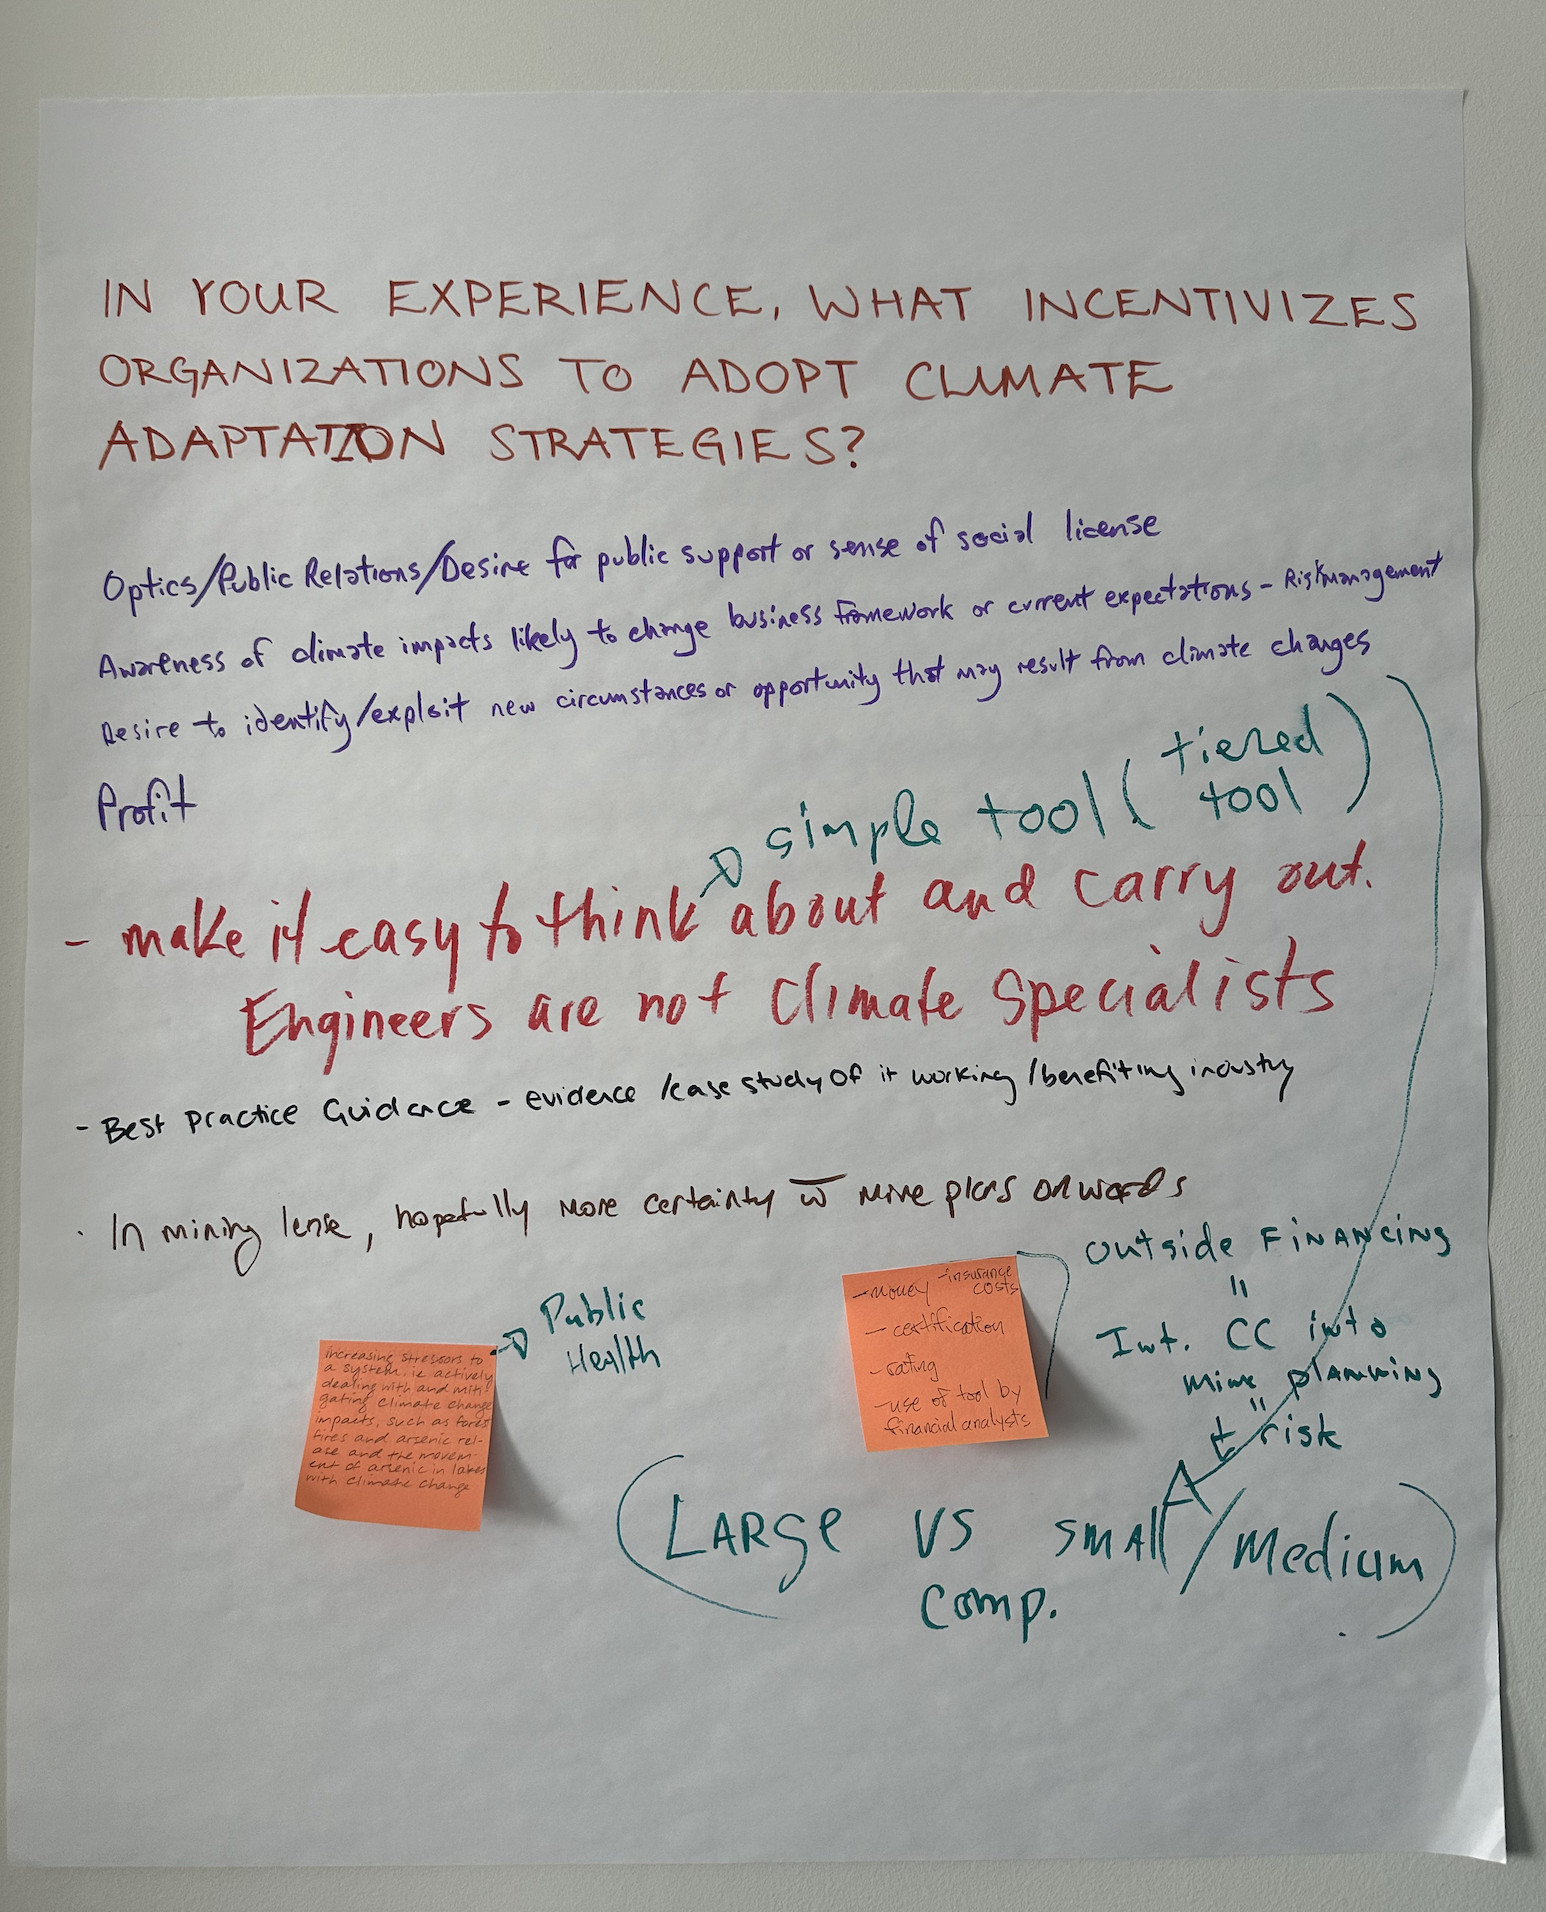 IN YOUR EXPERIENCE, WHAT INCENTIVIZES
ORGANIZATIONS TO ADOPT CLIMATE
ADAPTATION STRATEGIES?
Optics/Public Relations/Desire for public support or sense of social license
Awareness of climate impacts likely to change business framework or current expectations - Risk management
Desire to identify/exploit new circumstances or opportunity that may result from climate changes
Profit
simple tool (tiered
tool)
- make it easy to think about and carry out.
Engineers are not Climate Specialists
- Best Practice Guidance - evidence /case study of it working /benefiting industry
· In mining lense, hopefully more certainty w̅ mine plans onwards
Public
Health
increasing stressors to
a system, ie actively
dealing with and miti-
gating climate change
impacts, such as forest
fires and arsenic rel-
ase and the movem-
ent of arsenic in lakes
with climate change
- money - insurance
costs
- certification
- rating
- use of tool by
financial analysts
outside FINANCING
=
Int. CC into
mine planning
=
risk
(LARGE VS small/medium)
comp.